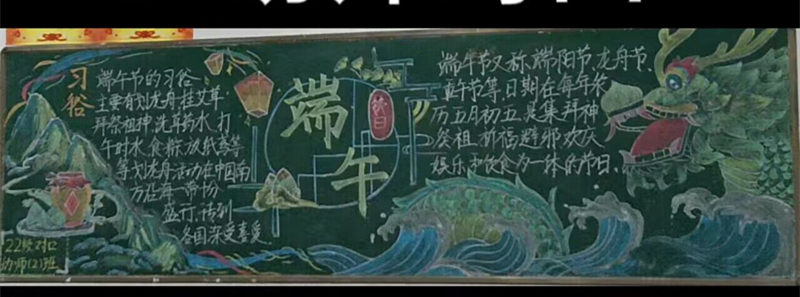 习俗
端午节的习俗
主要有划龙舟、挂艾草、
拜祭祖神、洗草药水、打
午时水、食粽、放纸鸢等
等划龙舟活动在中国南
方沿海一带十分
盛行,传到
各国深受喜爱
22级对口
幼师(2)班
端午
节日
端午节又称端阳节、龙舟节、
等,日期在每年农
历五月初五,是集拜神
祭祖、祈福避邪、欢庆
娱乐和饮食为一体的节日。